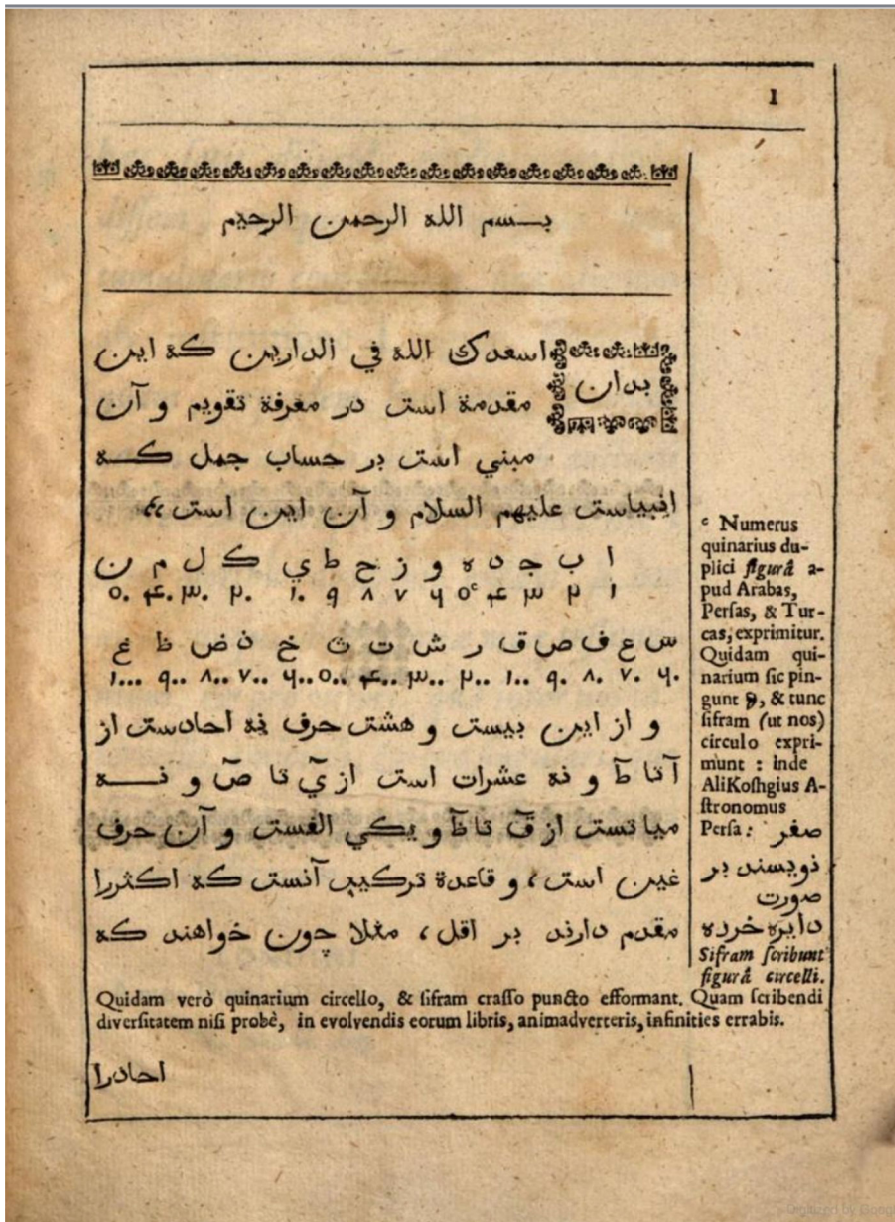 1
بسم الله الرحمن الرحيم
بدان اسعدك الله في الدارين كه اين
مقدمة است در معرفة تقويم و آن
مبني است بر حساب جمل كه
انبياست عليهم السلام و آن اين است
ا ب ج د ه و ز ح ط ي ك ل م ن
۱ ۲ ۳ ۴ ٥ᶜ ۶ ۷ ۸ ۹ ۱. ۲. ۳. ۴. ٥.
س ع ف ص ق ر ش ت ث خ ذ ض ظ غ
۶. ۷. ۸. ۹. ۱.. ۲.. ۳.. ۴.. ٥.. ۶.. ۷.. ۸.. ۹.. ۱...
و از اين بيست و هشت حرف نه احادست از
آ تا طٓ و نه عشرات است از يٓ تا صٓ و نه
مياتست از قٓ تا ظٓ و يكي الفست و آن حرف
غين است، و قاعدة تركيب آنست كه اكثررا
مقدم دارند بر اقل، مثلا چون خواهند كه
ᶜ Numerus
quinarius du-
plici figurâ a-
pud Arabas,
Persas, & Tur-
cas, exprimitur.
Quidam qui-
narium sic pin-
gunt , & tunc
sifram (ut nos)
circulo expri-
munt : inde
AliKoshgius A-
stronomus
Persa: صفر
نويسند بر
صورت
دايره خرده
Sifram scribunt
figurâ circelli.
Quidam verò quinarium circello, & sifram crasso puncto efformant. Quam scribendi
diversitatem nisi probè, in evolvendis eorum libris, animadverteris, infinities errabis.
احادرا
Digitized by Google